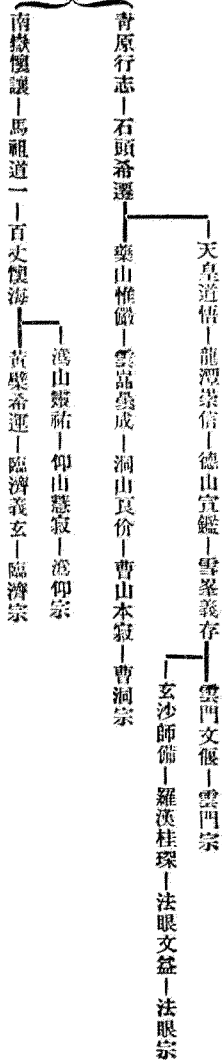 天皇道悟—龍潭崇信—德山宣鑑—雪峯義存
雲門文偃—雲門宗
玄沙師備—羅漢桂琛—法眼文益—法眼宗
青原行志—石頭希遷
藥山惟儼—雲巖曇成—洞山良价—曹山本寂—曹洞宗
南嶽懷讓—馬祖道一—百丈懷海
溈山靈祐—仰山慧寂—溈仰宗
黃檗希運—臨濟義玄—臨濟宗